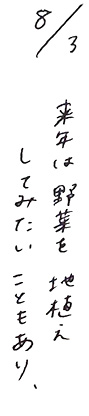 8/3
来年は野菜を地植え
してみたいこともあり、